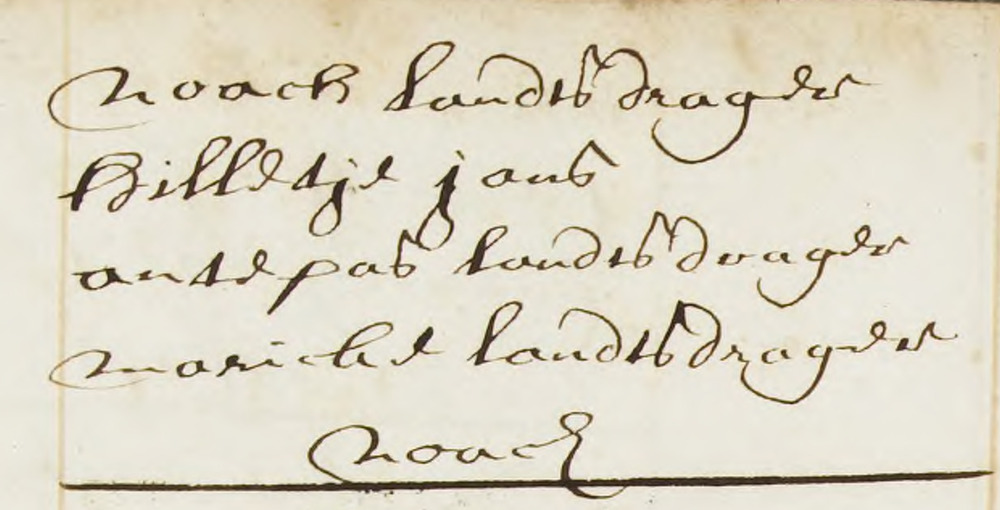 noach landtsdrager
hilletje jans
antepas landtsdrager
maritie landtsdrager
noach